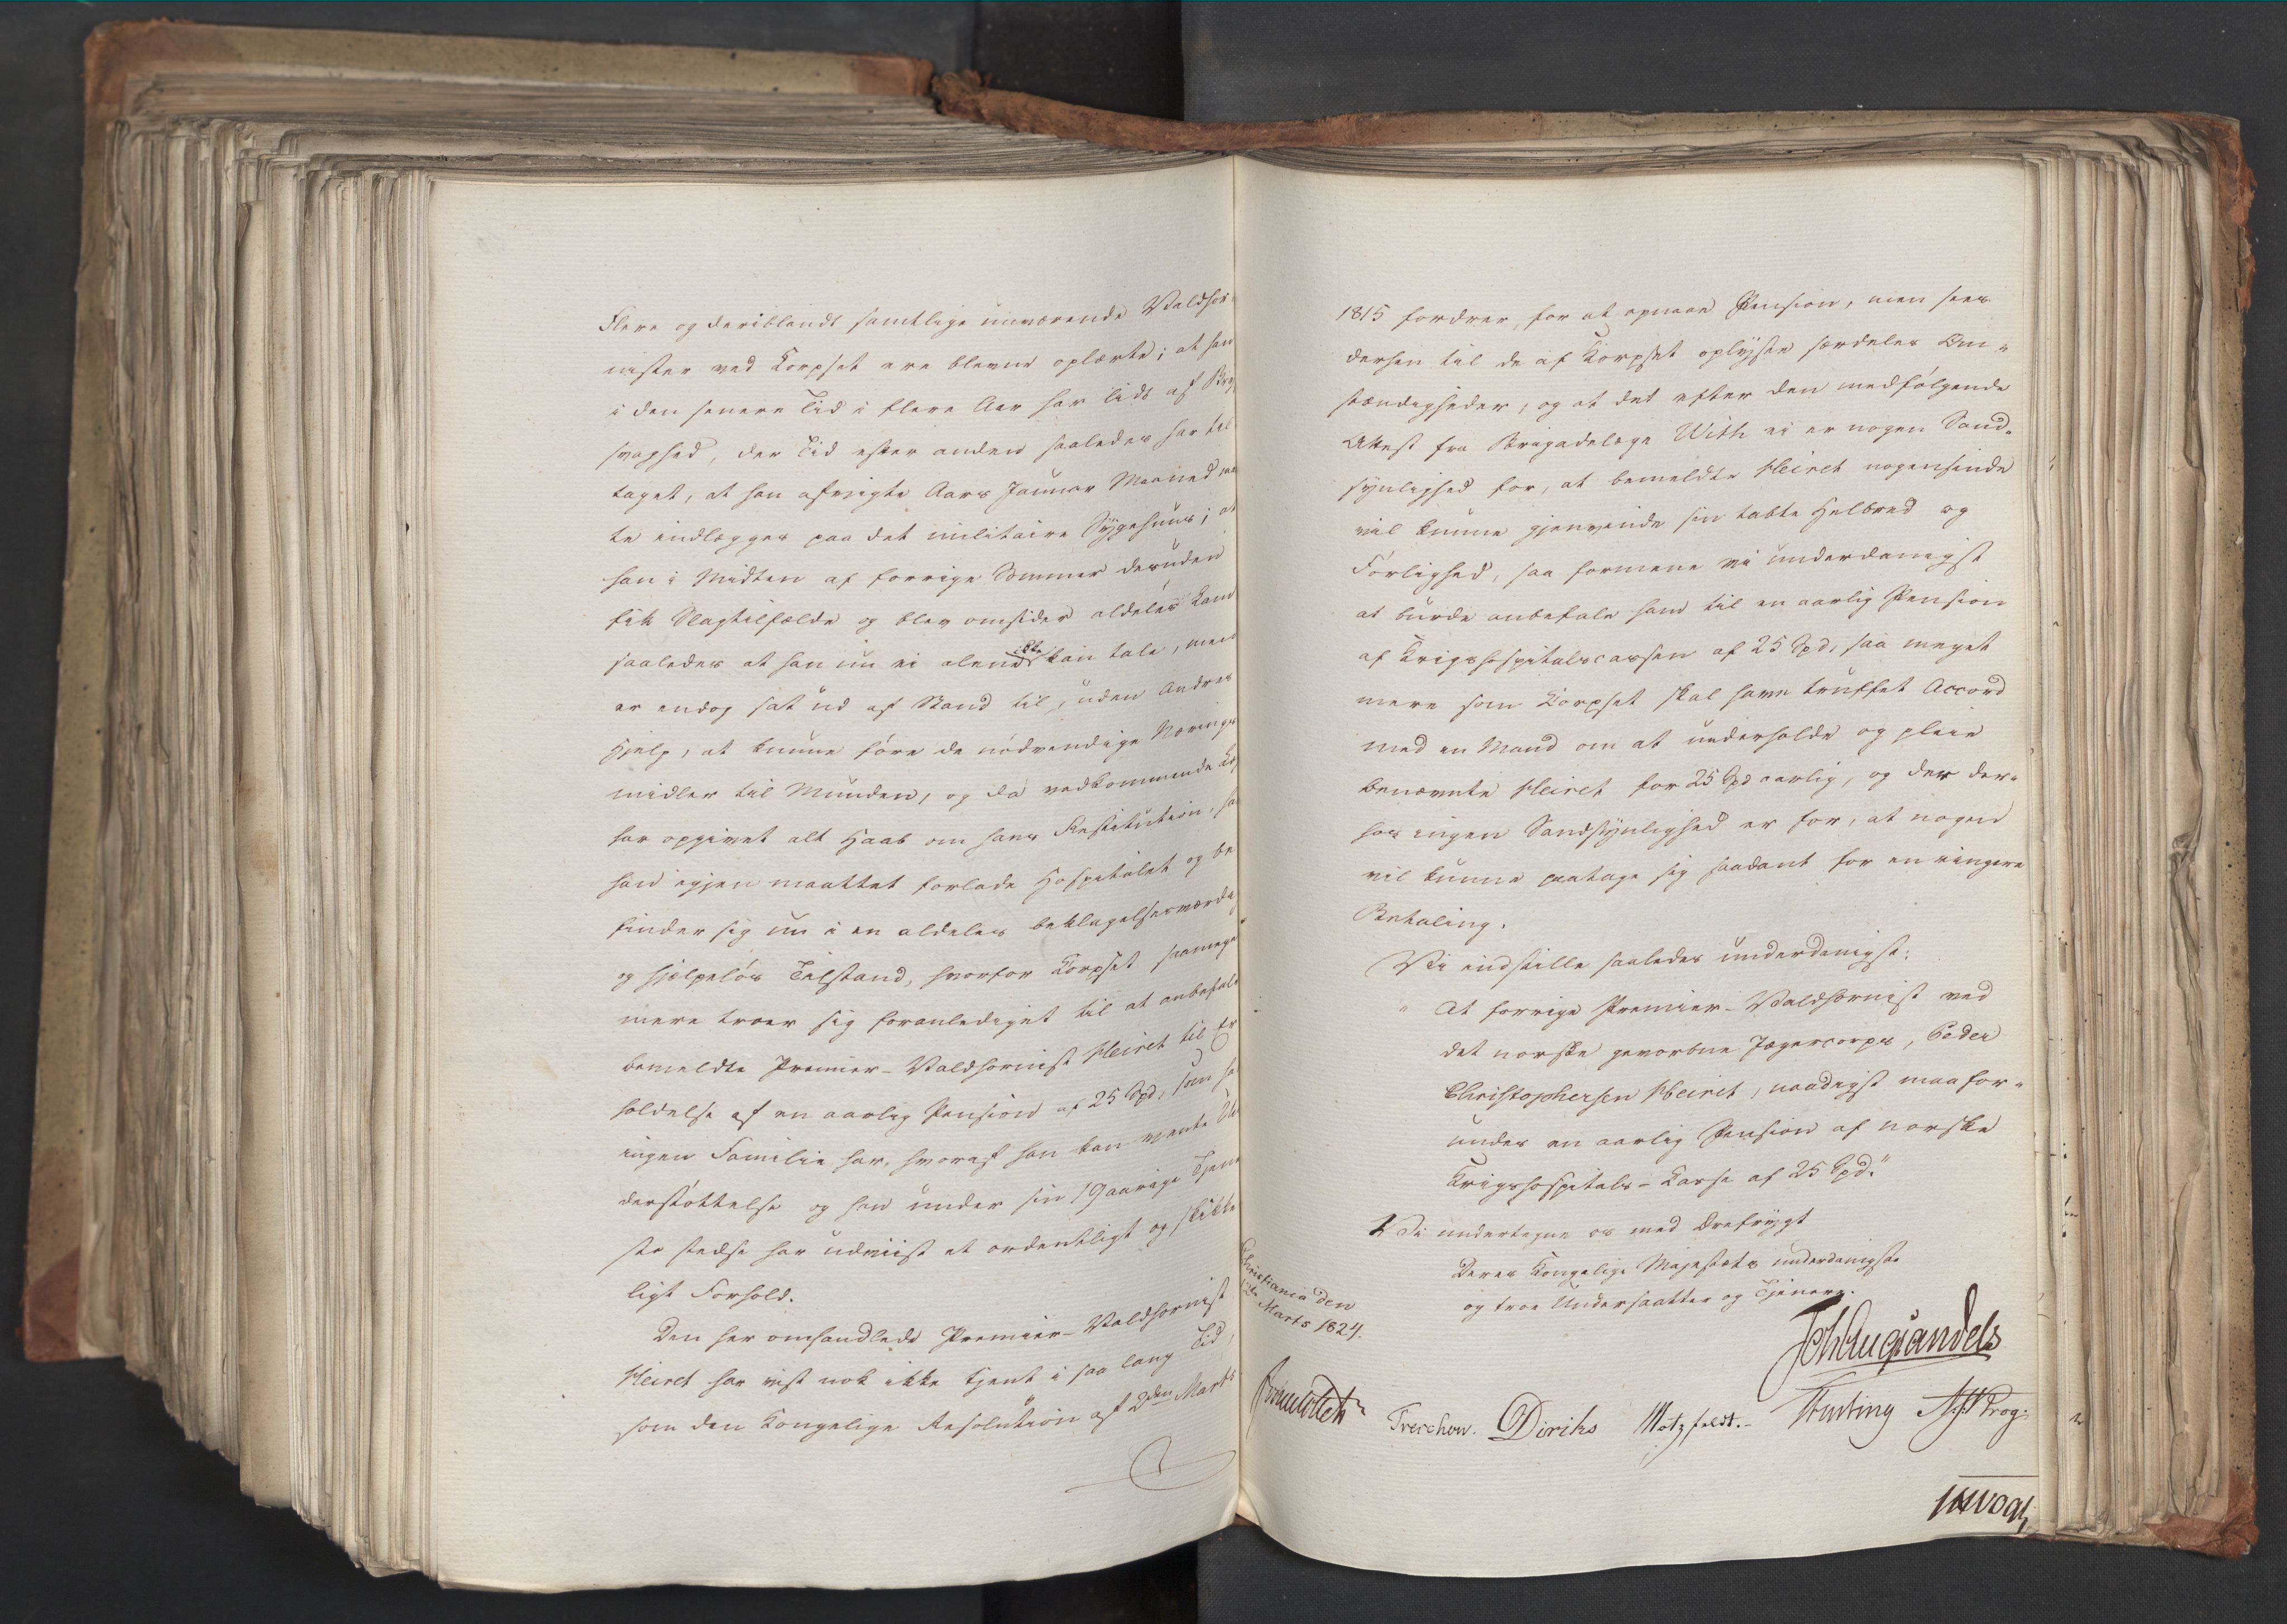 flere og deriblandt samtlige nuværende Valdhor-
nister ved Korpset ere blevne oplærte; at han
i den senere Tid i flere Aar har lidt af Bryst
svaghed, der Tid efter anden saaledes har til
taget, at han afvigte Aars Januar Maaned maat
te indlægges paa det militaire Sygehuus; at
han i Midten af forrige Sommer desuden
fik Slagtilfælde og blev omsider aldeles Lam
saaledes at han nu ei alene ikke kan tale, men
er endog sat ud af Stand til, uden Andres
Hjelp, at kunne före de nödvendige Nærings
midler til Munden, og da vedkommende
har opgivet alt Haab om hans Restitution, har
han igjen maattet forlade Hospitalet og be
finder sig nu i en aldeles beklagelsesværdig
og hjelpelös Tilstand, hvorfor Korpset saameget
mere troer sig foranlediget til at anbefale
bemeldte Premier-Valdhornist Heiret til Er
holdelse af en aarlig Pension af 25 Spd, som ha
ingen Familie har, hvoraf han kan vente Un
derstöttelse og han under sin 19aarige Tjene
ste stedse har udviist et ordentligt og skikke
ligt Forhold.
Den her omhandlede Premier-Valdhornist
Heiret har vist nok ikke tjent i saa lang Tid,
som den Kongelige Resolution af 2den Marts
1815 fordrer, for at opnaae Pension, men hen-
dersen til de af Korpset oplyste særdeles Om-
stændigheder, og at det efter den medfölgende
Attest fra Brigadelæge With ei er nogen Sand-
synlighed for, at bemeldte Heiret nogensinde
vil kunne gjenvinde sin tabte Helbred og
Förlighed, saa formene vi underdanigst
at burde anbefale ham til en aarlig Pension
af Krigshospitalscassen af 25 Spd, saa meget
mere som Korpset skal have truffet Accord
med en Mand om at underholde og pleie
benævnte Heiret for 25 Spd aarlig, og der der-
hos ingen Sandsynlighed er for, at nogen
vil kunne paatage sig saadant for en ringere
Betaling.
Vi indstille saaledes underdanigst:
" At forrige Premier-Valdhornist ved
det norske gevorbne Jægercorps, Peder
Christophersen Heiret, naadigst maa for-
undes en aarlig Pension af norske
Krigshospitals-Casse af 25 Spd."
Vi undertegne os med Ærefrygt
Deres Kongelige Majestæts underdanigste
og troe Undersaatter og Tjenere.
Christiania den
Marts 1824.
Joh Aug Sandels
Sommerfeldt
Treschow. Diriks Motzfeldt. Fasting Krog.
Vogt